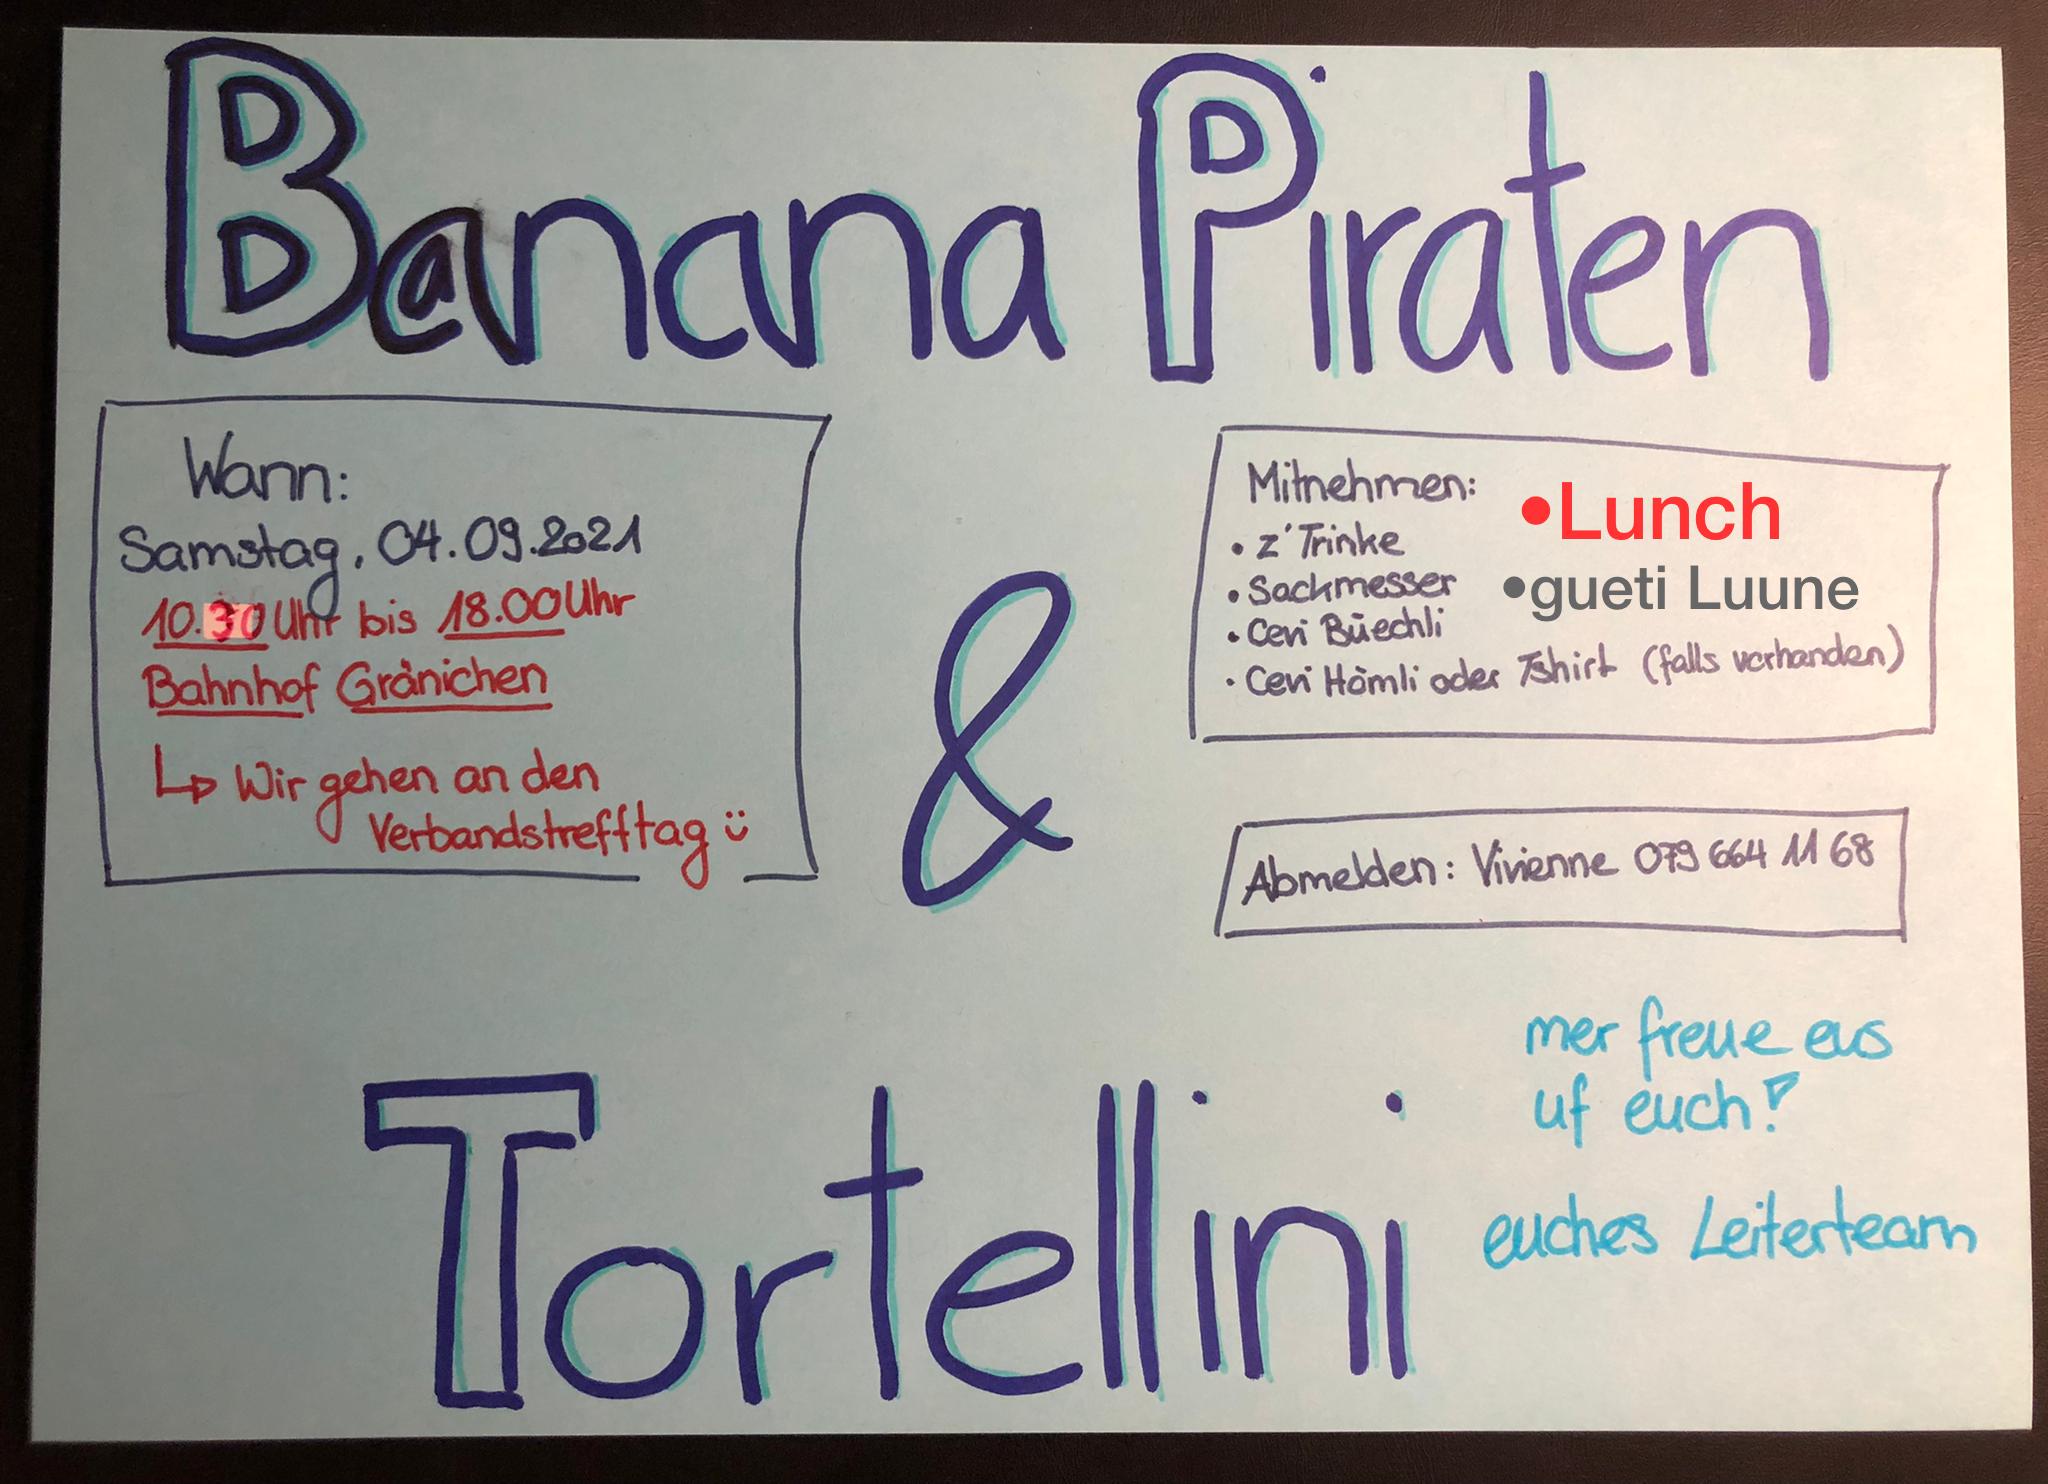 Banana Piraten
Wann:
Samstag, 04.09.2021
10.30 Uhr bis 18.00 Uhr
Bahnhof Gränichen
↳ Wir gehen an den
Verbandstrefftag ü
&
Mitnehmen:
• z'Trinke
• Sackmesser
• Cevi Büechli
• Cevi Hömli oder Tshirt (falls vorhanden)
•Lunch
•gueti Luune
Abmelden: Vivienne 079 664 11 68
Tortellini
mer freue eus
uf euch!
euches Leiterteam